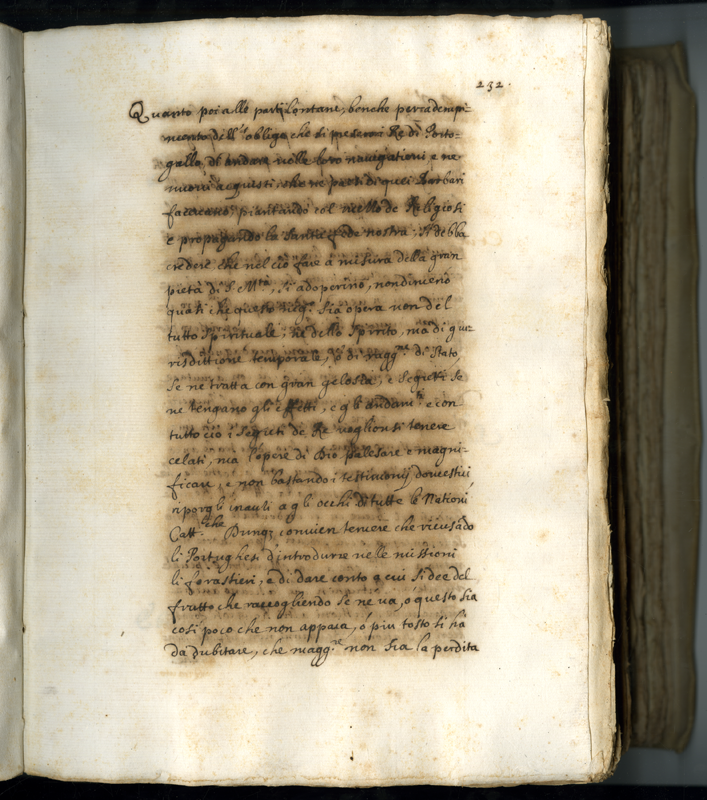 232.
Quanto poi alle parti lontane, benche per adempi=
mento dell' obligo che si presero i Re di Porto=
gallo, di andare nelle loro navigationi e ne
nuovi acquisti, che ne paesi di quei Barbari
facevano, piantando col mezzo de Religiosi
e propagando la Santa fede nostra, si debba
credere che nel ciò fare a misura della gran
pietà di S. Mtà, si adoperino, nondimeno
quasi che questo neg.o sia opera non del
tutto spirituale, ne dello spirito, mà di giu=
risdittione temporale, o di ragg.ne di stato,
se ne tratta con gran gelosia, e segreti se
ne tengano gli effetti, e gli andam.ti e con
tutto cio i segreti de Re vogliono si tenere
celati, mà l'opere di Dio palesare e magni=
ficare, e non bastando i testimonij domestici
agli occhi di tutte le Nationi
Catt.che Dunq; convien temere che ricusãdo
li Portughesi d'introdurre nelle missioni
li forastieri, e di dare conto a cui si dee del
frutto che raccogliendo se ne va, ó questo sia
cosi poco che non appaia, ó piu tosto si ha
da dubitare, che magg.re non sia la perdita